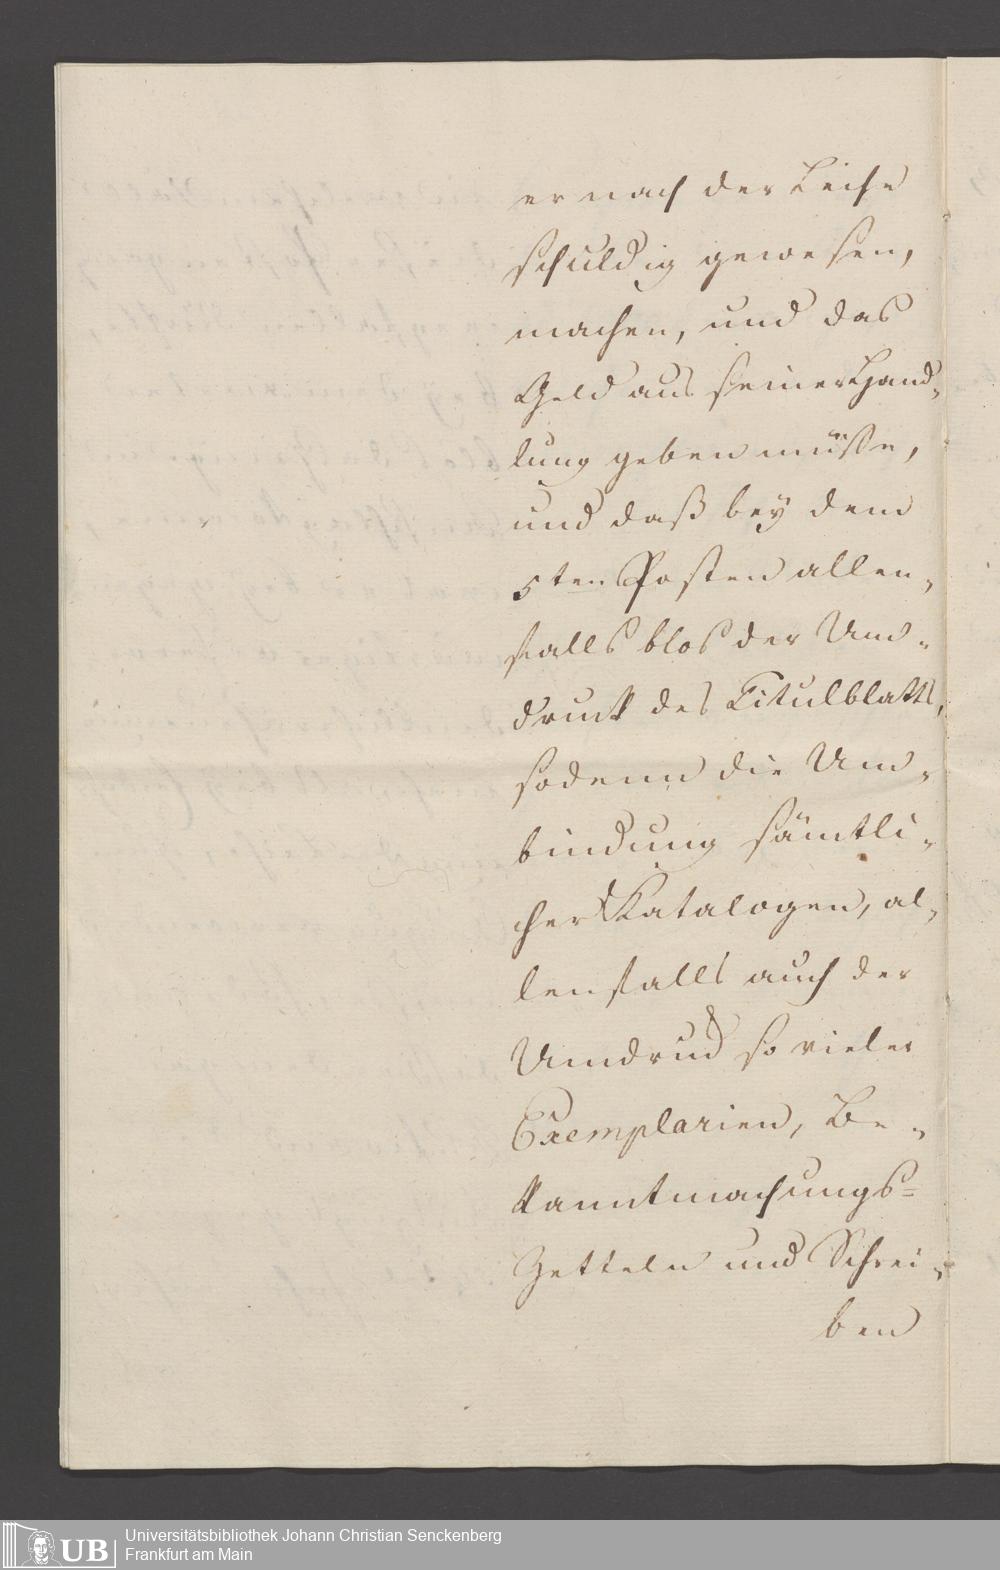 er nach der Leihe
schuldig gewesen,
machen, und das
Geld aus seiner Hand„
lung geben müsse,
und daß bey dem
5ten Posten allen„
falls blos der Um„
druck des Titulblatts,
sodenn die Um„
bindung sämtli„
cher Katalogen, al„
lenfalls auch der
Umdruck so vieler
Exemplarien, Be„
kanntmachungs=
Zetteln und Schrei„
ben
UB
Universitätsbibliothek Johann Christian Senckenberg
Frankfurt am Main